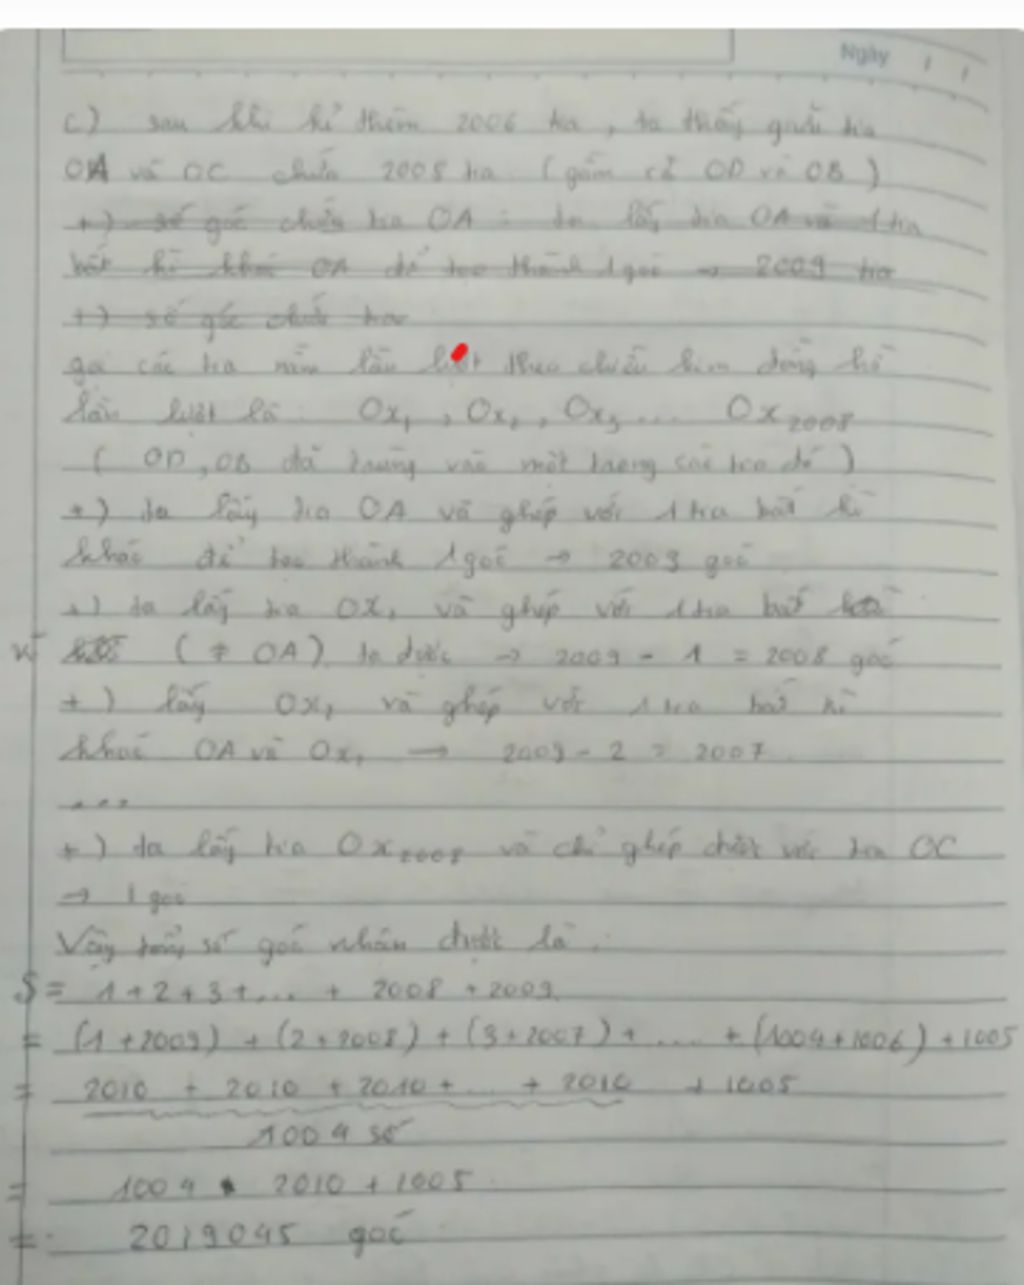 Ngày / /
c) sau khi kẻ thêm 2006 tia, ta thấy giữa tia
OA và OC chứa 2008 tia (gồm cả OD và OB)
+) số góc chứa tia OA : ta lấy tia OA và 1 tia
bất kì khác OA để tạo thành 1 góc → 2009 tia
+) số góc chứa tia
gọi các tia nằm lần lượt theo chiều kim đồng hồ
lần lượt là Ox₁, Ox₂, Ox₃ .... Ox₂₀₀₈
( OD, OB đã trùng vào một trong các tia đó )
+) ta lấy tia OA và ghép với 1 tia bất kì
khác để tạo thành 1 góc → 2009 góc
+) ta lấy tia OX₁ và ghép với 1 tia bất
kì (≠ OA) ta được → 2009 - 1 = 2008 góc
+) lấy Ox₂ và ghép với 1 tia bất kì
khác OA và Ox₁ → 2009 - 2 = 2007
...
+) ta lấy tia Ox₂₀₀₈ và chỉ ghép được với tia OC
→ 1 góc
Vậy tổng số góc nhận được là :
S = 1 + 2 + 3 + ... + 2008 + 2009
= (1 + 2009) + (2 + 2008) + (3 + 2007) + .... + (1004 + 1006) + 1005
= 2010 + 2010 + 2010 + ... + 2010 + 1005
1004 số
= 1004 . 2010 + 1005
= 2019045 góc